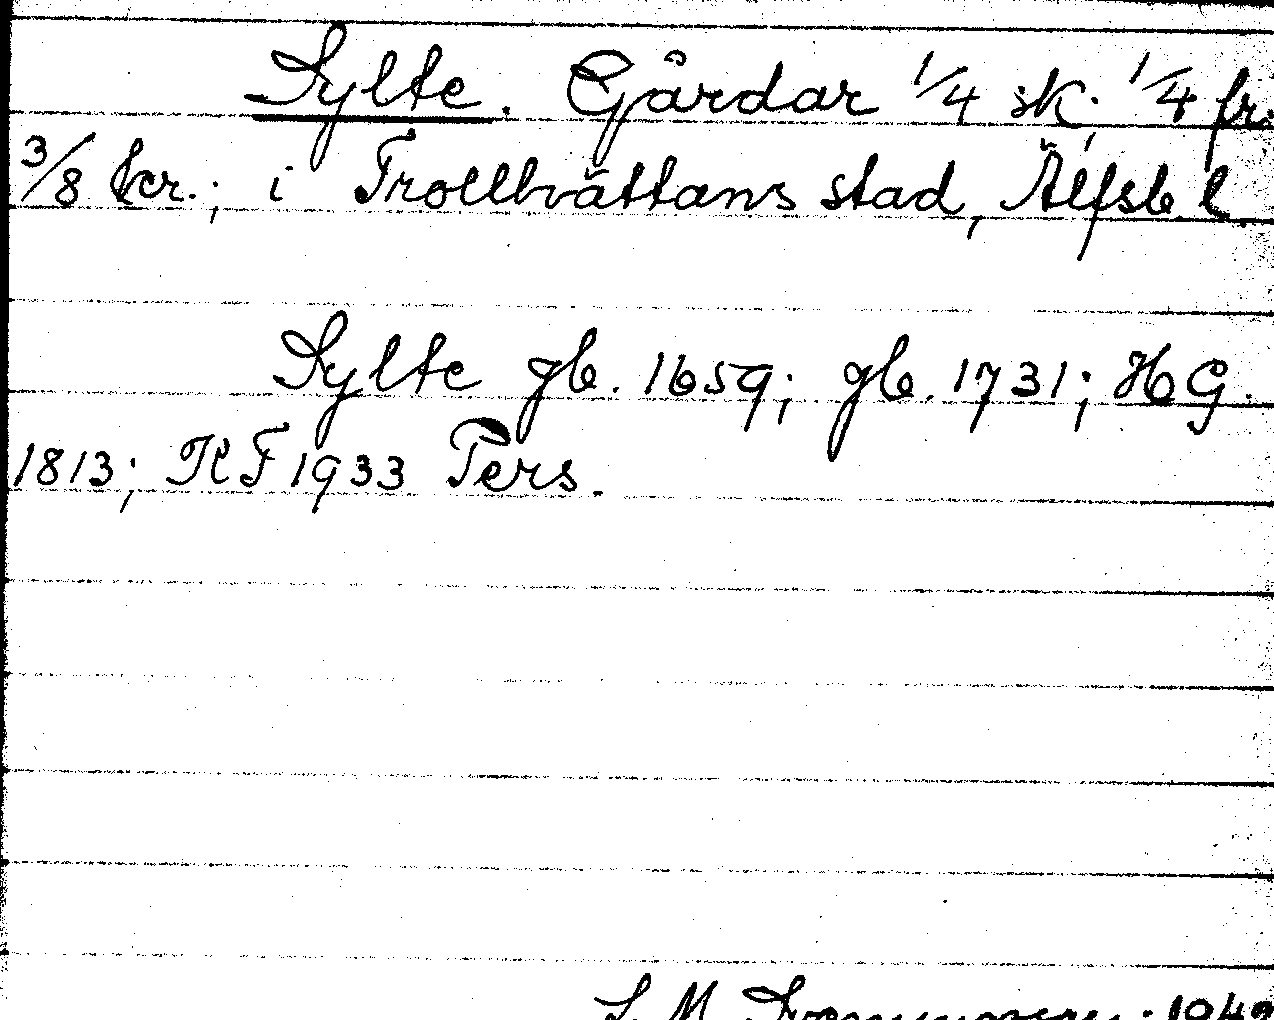 Sylte. Gårdar 1/4 sk; 1/4 fr.
3/8 kr.; i Trollhvättans stad, Älfsb. l.
Sylte gb. 1659; gb. 1731; HG.
1813; KF 1933 Pers.